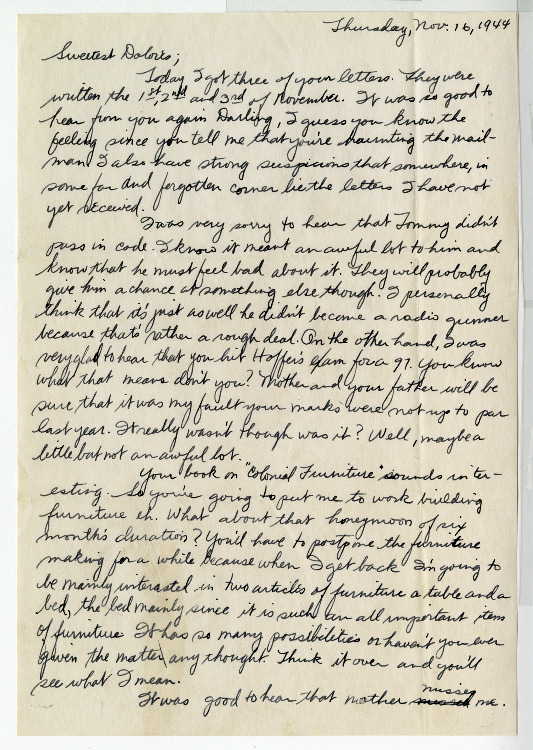 Thursday, Nov. 16, 1944
Sweetest Dolores;
Today I got three of your letters. They were
written the 1st, 2nd and 3rd of November. It was so good to
hear from you again Darling, I guess you know the
feeling since you tell me that you're haunting the mail-
man. I also have strong suspicions that somewhere, in
some far and forgotten corner lie the letters I have not
yet received.
I was very sorry to hear that Tommy didn't
pass in code. I know it meant an awful lot to him and
know that he must feel bad about it. They will probably
give him a chance at something else though. I personally
think that it's just as well he didn't become a radio gunner
because that's rather a rough deal. On the other hand, I was
very glad to hear that you hit Hoffer's exam for a 97. You know
what that means don't you? Mother and your father will be
sure that it was my fault your marks were not up to par
last year. It really wasn't though was it? Well, maybe a
little but not an awful lot.
Your book on "Colonial Furniture" sounds inter-
esting. So you're going to put me to work building
furniture eh. What about that honeymoon of six
month's duration? You'd have to postpone the furniture
making for a while because when I get back I'm going to
be mainly interested in two articles of furniture a table and a
bed, the bed mainly since it is such an all important item
of furniture. It has so many possibilities or haven't you ever
given the matter any thought. Think it over and you'll
see what I mean.
It was good to hear that mother misses me.